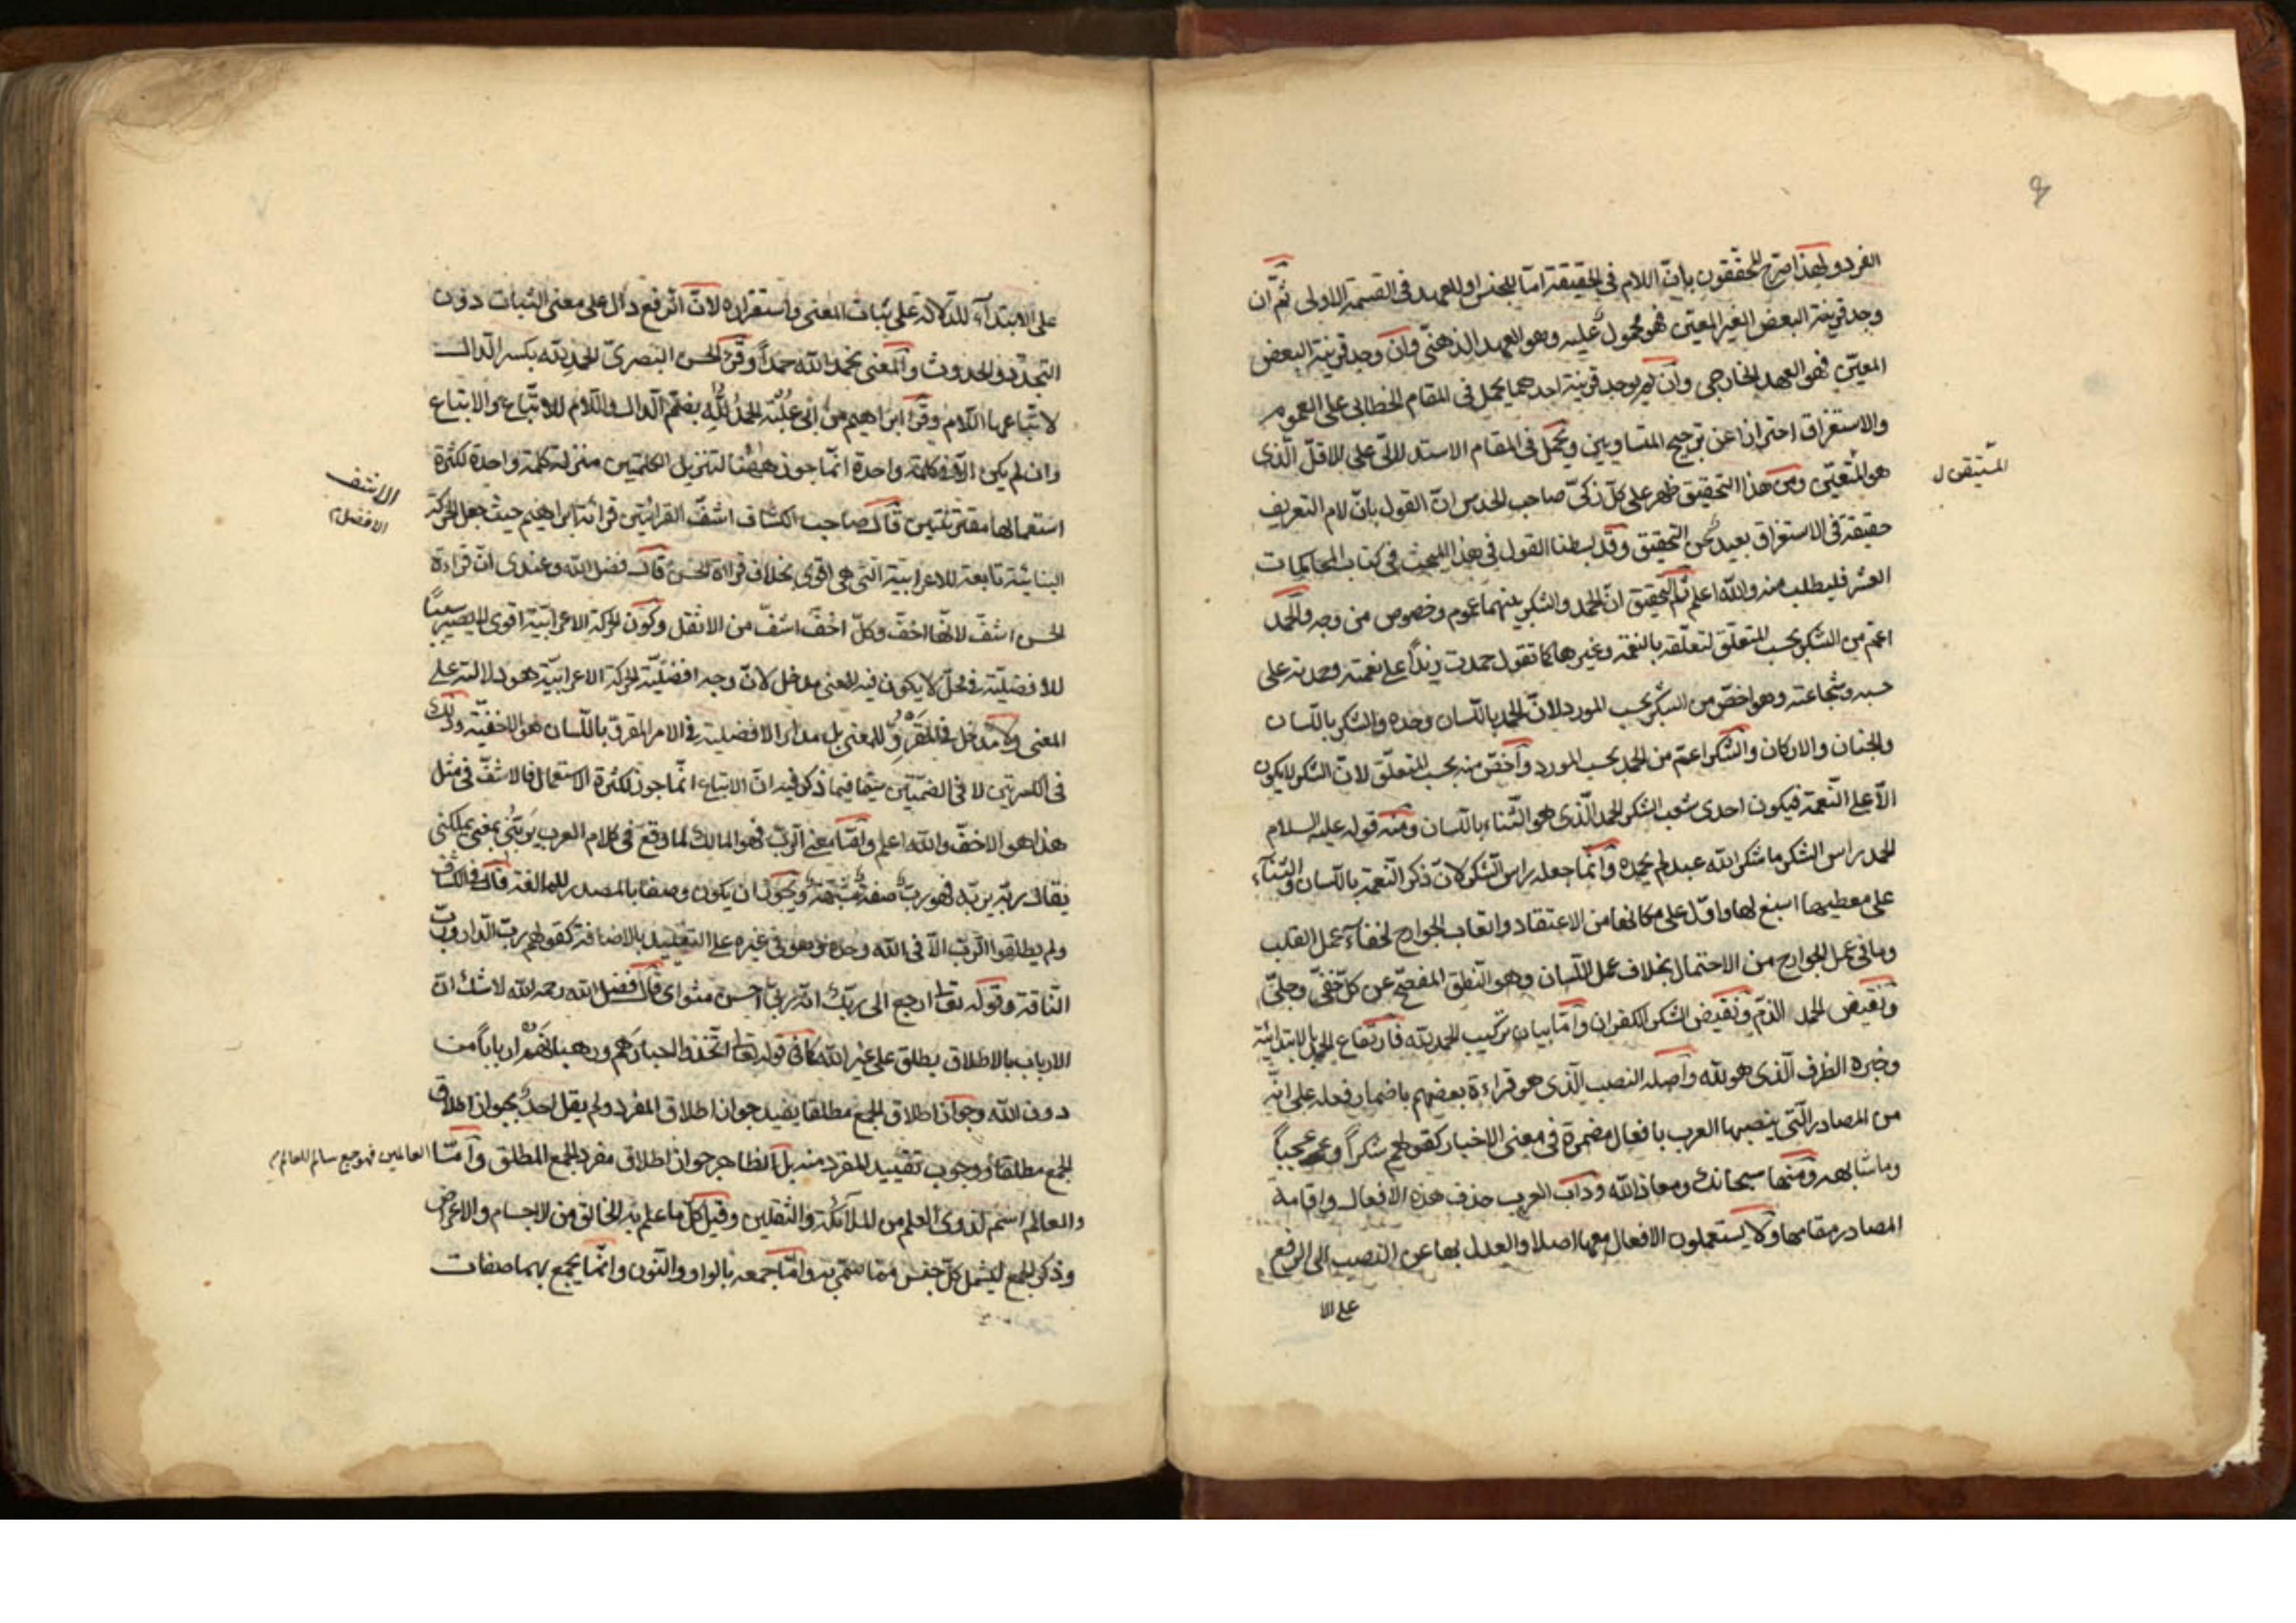 الفرد ولهذا صرح المحققون بانّ اللام فى الحقيقة امّا للجنس او للعهد فى القسمة الاولى ثمّ ان
وجد قرينة البعض الغير المعيّن فهو محمول عليه وهو العهد الذهنىّ وان وجد قرينة البعض
المعيّن فهو العهد الخارجى وان لم يوجد قرينة احدهما يحمل فى المقام الخطابى على العموم
والاستغراق احترازا عن ترجيح المتساويين ويحمل فى المقام الاستدلالى على الاقلّ الّذى
هو المتعيّن ومن هذا التحقيق ظهر على كلّ ذكىّ صاحب الحدس انّ القول بانّ لام التعريف
حقيقة فى الاستغراق بعيد عن التحقيق وقد بسطنا القول فى هذا المبحث فى كتاب المحاكمات
العشر فليطلب منه والله اعلم ثم التحقيق انّ الحمد والشكر بينهما عموم وخصوص من وجه والحمد
اعمّ من الشكر بحسب المتعلّق لتعلّقه بالنعمة وغيرها كما تقول حمدت زيداً على نعمته وحمدته على
حسبه وشجاعته وهو اخصّ من الشكر بحسب المورد لانّ الحمد باللسان وحده والشكر باللسان
والجنان والاركان والشكر اعمّ من الحمد بحسب المورد واخصّ منه بحسب المتعلّق لانّ الشكر لا يكون
الّا على النّعمة فيكون احدى شعب الشكر الحمد الّذى هو الثّناء باللسان ومنه قوله عليه السلام
الحمد راس الشكر ما شكر الله عبد لم يحمده وانّما جعله راس الشكر لانّ ذكر النّعمة باللسان والثّناء
على معطيها اسبغ لها وادلّ على مكانها من الاعتقاد واتعاب الجوارح لخفاء عمل القلب
وما فى عمل الجوارح من الاحتمال بخلاف عمل اللسان وهو النّطق المفصح عن كلّ خفىّ وجلىّ
ونقيض الحمد الذمّ ونقيض الشكر الكفران وامّا بيان تركيب الحمد لله فارتفاع الحمد بالابتدائيّة
وخبره الظرف الّذى هو لله واصله النصب الّذى هو قراءة بعضهم باضمار فعله على انّه
من المصادر الّتى ينصبها العرب بافعال مضمرة فى معنى الاخبار كقولهم شكراً وعجباً
وما شابهه ومنها سبحانك ومعاذ الله وداب العرب حذف هذه الافعال واقامة
المصادر مقامها ولا يستعملون الافعال معها اصلا والعدل بها عن النصب الى الرفع
على الا
على الابتداء للدّلالة على ثبات المعنى واستقراره لانّ الرّفع دال على معنى الثبات دون
التجدّد والحدوث والمعنى نحمد الله حمداً وقرئ الحسن البصرىّ الحمدِ لله بكسر الدّال
لاتّباعها اللام وقرئ ابراهيم بن ابى عبلة الحمدُ لُله بضمّ الدّال واللام للاتّباع والاتباع
وان لم يكن الّا فى كلمة واحدة انّما جوز ههنا لتنزيل الكلمتين منزلة كلمة واحدة لكثرة
استعمالها مقترنتين قال صاحب الكشاف اشفّ القرائتين قرائة ابراهيم حيث جعل الحركة
البنائيّة تابعة للاعرابيّة التى هى اقوى بخلاف قراءة الحسن قال فضل الله وعندى انّ قراءة
الحسن اشفّ لانّها اخفّ وكلّ اخفّ اشفّ من الاثقل وكون الحركة الاعرابيّة اقوى لا يصير سبباً
للافضليّة فى محلّ لا يكون فيه للمعنى مدخل لانّ وجه افضليّة الحركة الاعرابيّة هو دلالته على
المعنى ولا مدخل فى المقروّ للمعنى بل مدار الافضلية فى الامر المقروّ باللسان هو الاخفيّة وذلك
فى الكسرتين لا فى الضمّتين سيّما فيما ذكر فيه انّ الاتباع انّما جوز لكثرة الاستعمال فالاشفّ فى مثل
هذا هو الاخفّ والله اعلم وامّا معنى الرّبّ فهو المالك لما وقع فى كلام العرب يربّنى بمعنى يملكنى
يقال ربّه يربّه فهو ربّ صفة مشبّهة ويجوز ان يكون وصفا بالمصدر للمبالغة قال فى الكشاف
ولم يطلقوا الرّب الّا فى الله وحده وهو فى غيره على التقييد بالاضافة كقولهم ربّ الدّار وربّ
النّاقة وقوله تعالى ارجع الى ربّك انّه ربّى احسن مثواى قال فضل الله رحمه الله لا شك انّ
الارباب بالاطلاق يطلق على غير الله كما فى قوله تعالى اتّخذوا احبارهم ورهبانهم ارباباً من
دون الله وجواز اطلاق الجمع مطلقا يفيد جواز اطلاق المفرد ولم يقل احدٌ بجواز اطلاق
الجمع مطلقا ووجوب تقييد المفرد منه بل الظاهر جواز اطلاق مفرد الجمع المطلق وامّا العالمين فهو جمع سالم للعالم
والعالم اسم لذوى العلم من الملائكة والثقلين وقيل كلّ ما علم به الخالق من الاجسام والاعراض
وذكر الجمع ليشمل كلّ جنس ممّا سمّى به وامّا جمعه بالواو والنّون وانّما يجمع بهما صفات
الاشف
الافضل